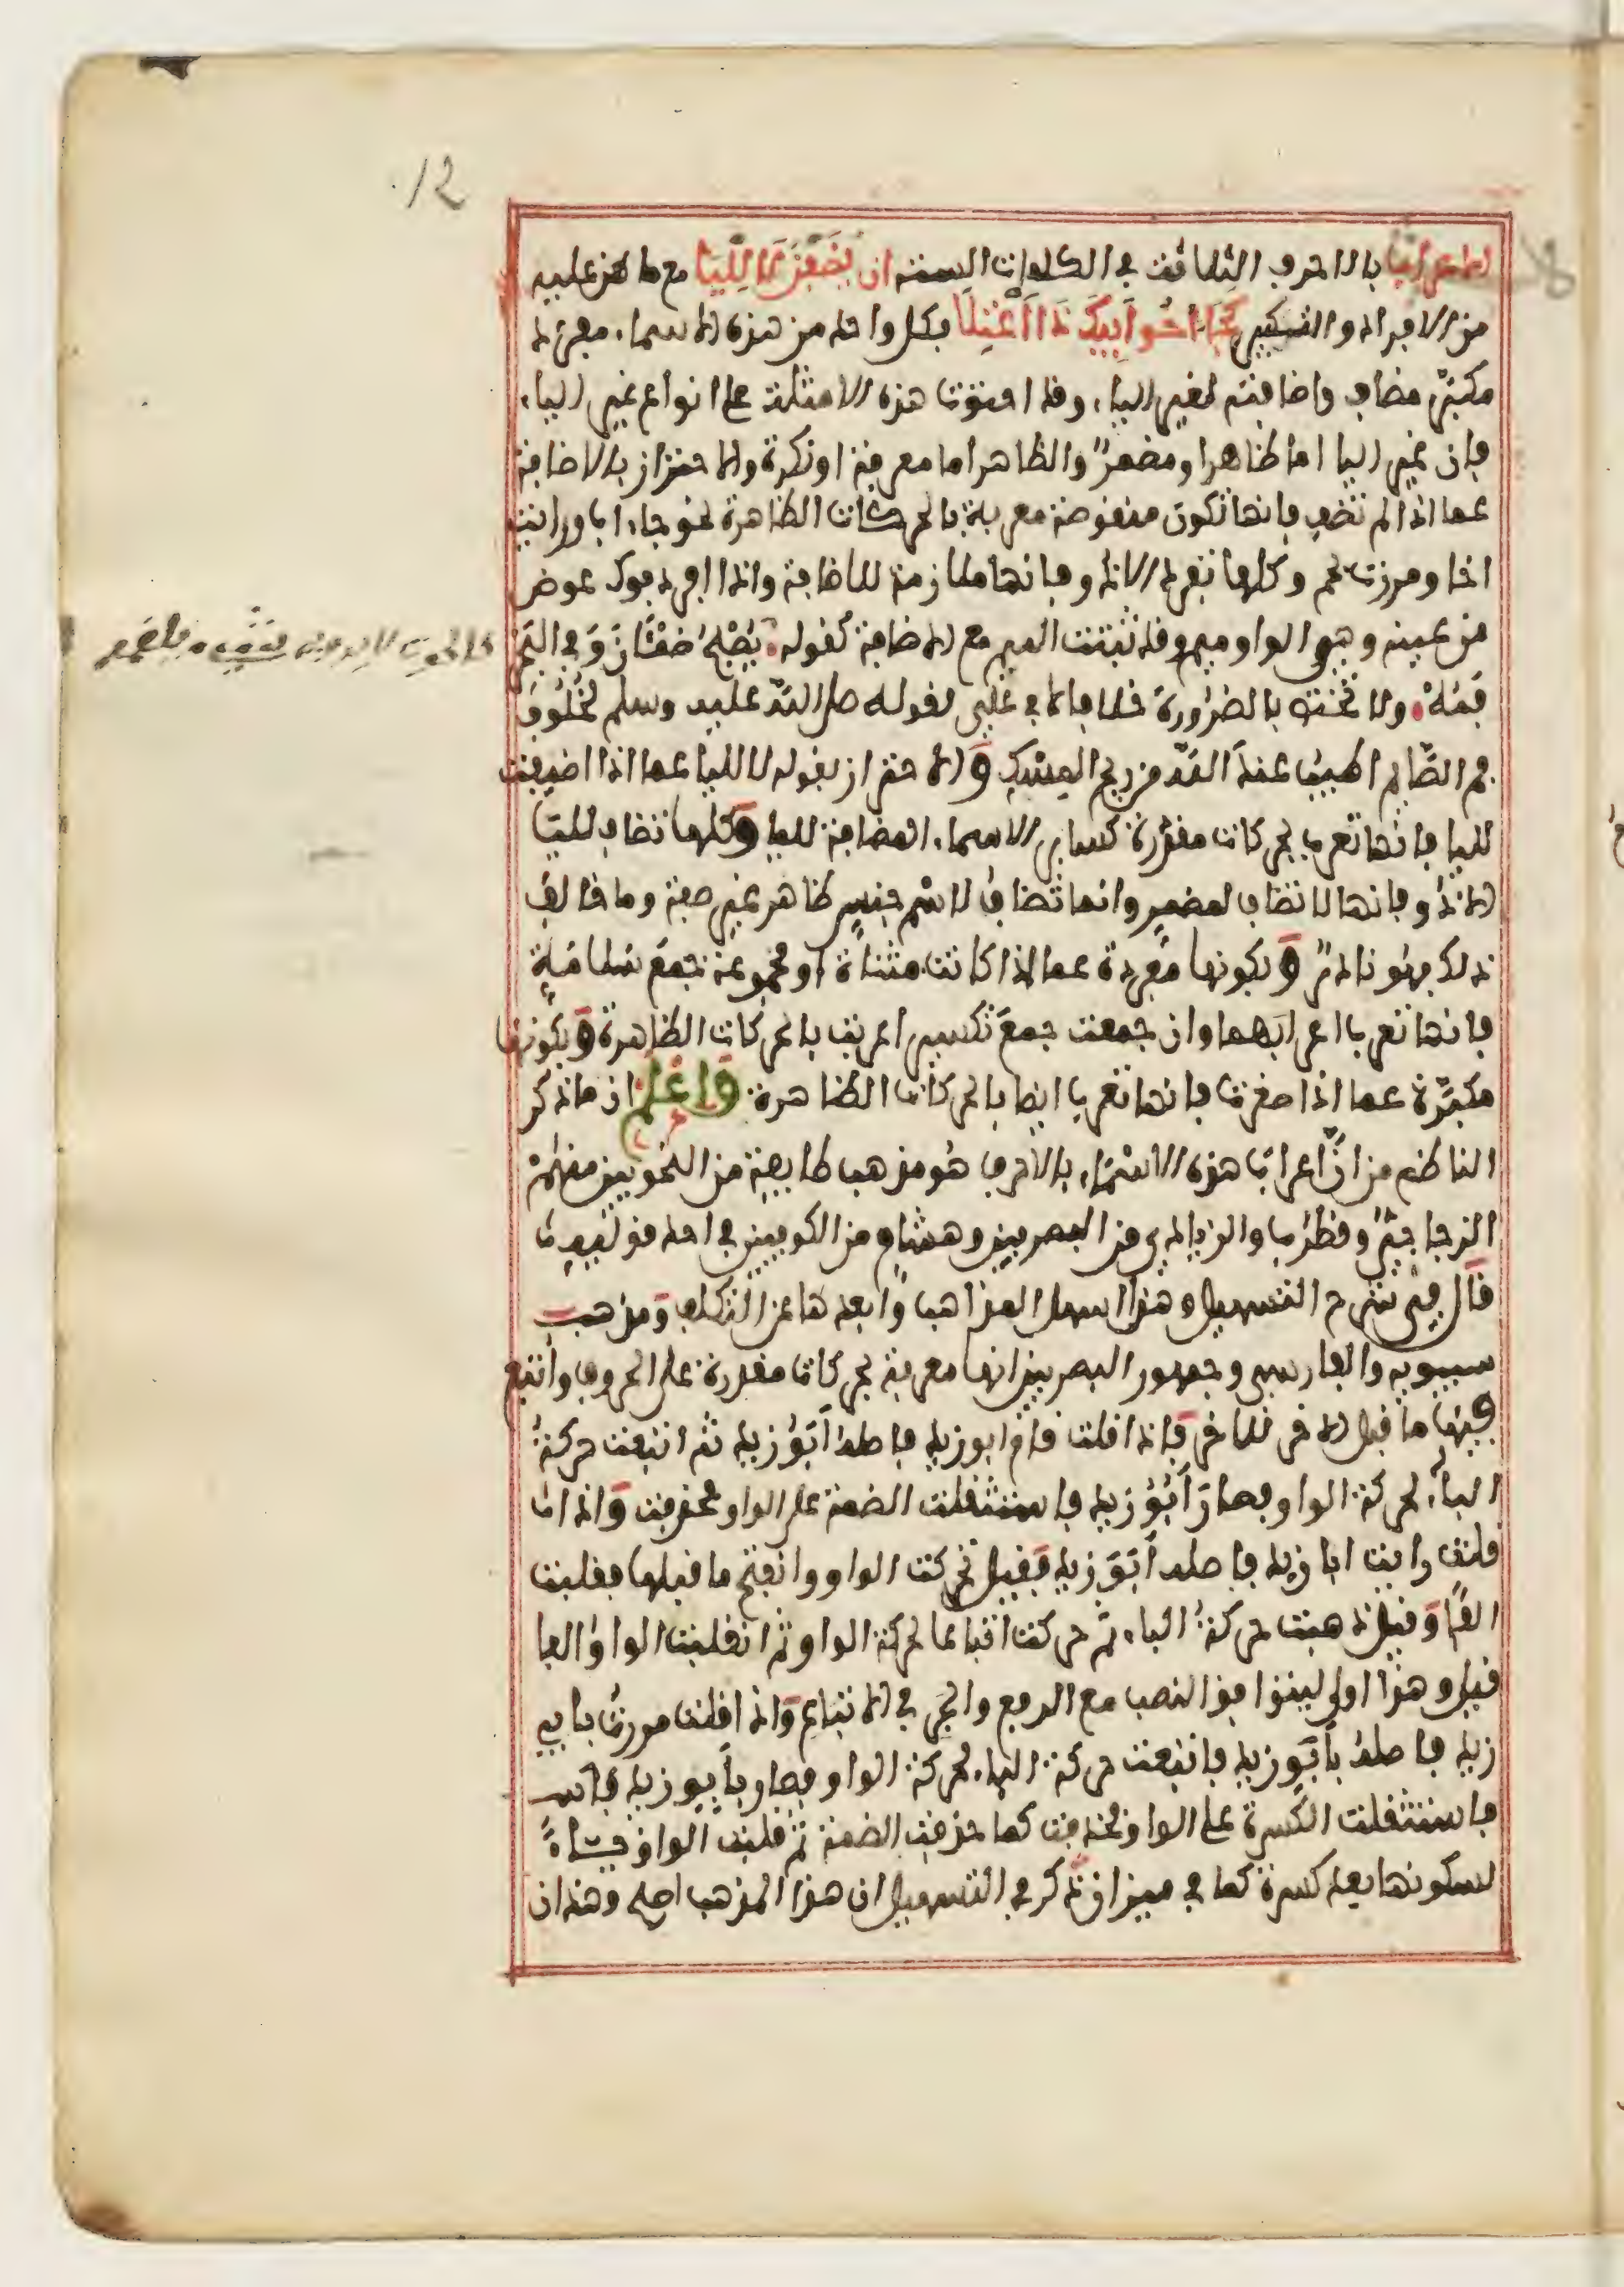 12
الاعراب بالاحرف الثلاثة في الكلمات الستة ان يضفن لا لليا مع ما هن عليه
من الافراد والتكبير كجا اخو ابيك ذا اعتلا فكل واحد من هذه الاسماء مفرد
مكبر مضاف واضافته لغير الياء وقد احتوت هذه الامثلة على انواع غير الياء
فان غير اليا اما ظاهر او مضمر والظاهر اما معرفة او نكرة والاحتراز بالاضافة
عما اذا لم تضف فانها تكون منقوصة معربة بالحركات الظاهرة نحو جاء اب ورايت
اخا ومررت بحم وكلها تفرد الا ذو فانها ملازمة للاضافة واذا افرد فوك عوض
من عينه وهو الواو ميم وقد تثبت الميم مع الاضافة كقوله يصبح ظمئان وفي البحر
فمه ولا تختص بالضرورة خلافا لابي علي لقوله صلى الله عليه وسلم لخلوف
فم الصايم اطيب عند الله من ريح المسك والاحتراز بقوله لا لليا عما اذا اضيفت
لليا فانها تعرب بحركات مقدرة كساير الاسماء المضافة لليا وكلها تضاف لليا
الا ذو فانها لا تضاف لمضمر وانما تضاف لاسم جنس ظاهر غير صفة وما خالف
ذلك فهو نادر وبكونها مفردة عما اذا كانت مثناة او مجموعة جمع سلامة
فانها تعرب اعرابهما وان جمعت جمع تكسير اعربت بالحركات الظاهرة وبكونها
مكبرة عما اذا صغرت فانها تعرب ايضا بالحركات الظاهرة واعلم ان ما ذكر
الناظم من ان اعراب هذه الاسماء بالاحرف هو مذهب طايفة من النحويين منهم
الزجاجي وقطرب والزيادي من البصريين وهشام من الكوفيين في احد قوليهما
قال في شرح التسهيل وهذا اسهل المذاهب وابعدها عن التكلف ومذهب
سيبويه والفارسي وجمهور البصريين انها معربة بحركات مقدرة على الحروف واتبع
فيها ما قبل الاخر للاخر فاذا قلت قام ابو زيد فاصله ابو زيد ثم اتبعت حركة
الباء لحركة الواو فصار ابو زيد فاستثقلت الضمة على الواو فحذفت واذا
قلت رايت ابا زيد فاصله ابو زيد فقيل تحركت الواو وانفتح ما قبلها فقلبت
الفا وقيل ذهبت حركة الباء ثم حركت اتباعا لحركة الواو ثم انقلبت الواو الفا
قيل وهذا اولى ليتوافق النصب مع الرفع والجر في الاتباع واذا قلت مررت بابي
زيد فاصله بابو زيد فاتبعت حركة الباء لحركة الواو فصار بابو زيد
فاستثقلت الكسرة على الواو فحذفت كما حذفت الضمة ثم قلبت الواو ياء
لسكونها بعد كسرة كما في ميزان ذكر في التسهيل ان هذا المذهب اصح وهذان